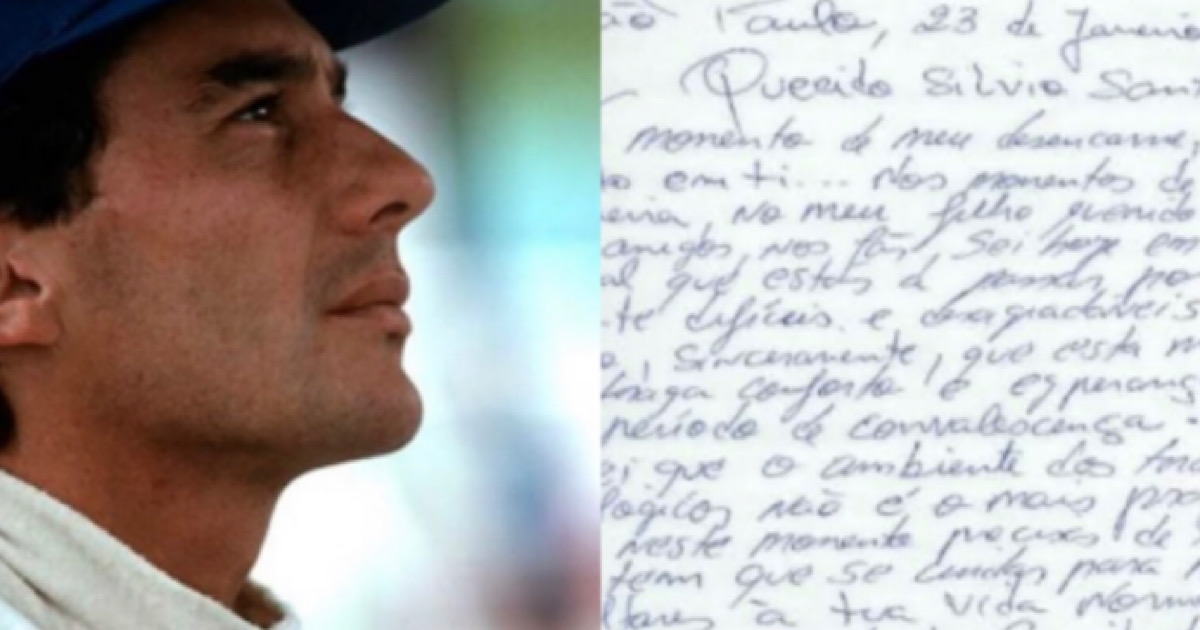 ão Paulo, 23 de Janeiro
Querido Silvio Sant
momento de meu desencarne,
em ti... Nos momentos de
No meu filho querido
amigos, nos fãs, Sei hoje em
al que estás a passar po
te difíceis e desagradáveis
, Sinceramente, que esta m
traga conforto e esperanç
período de convalescença
ei que o ambiente dos
lógicos não é o mais pro
Neste momento precisas de
tem que se cuidar para
à tua vida Norm